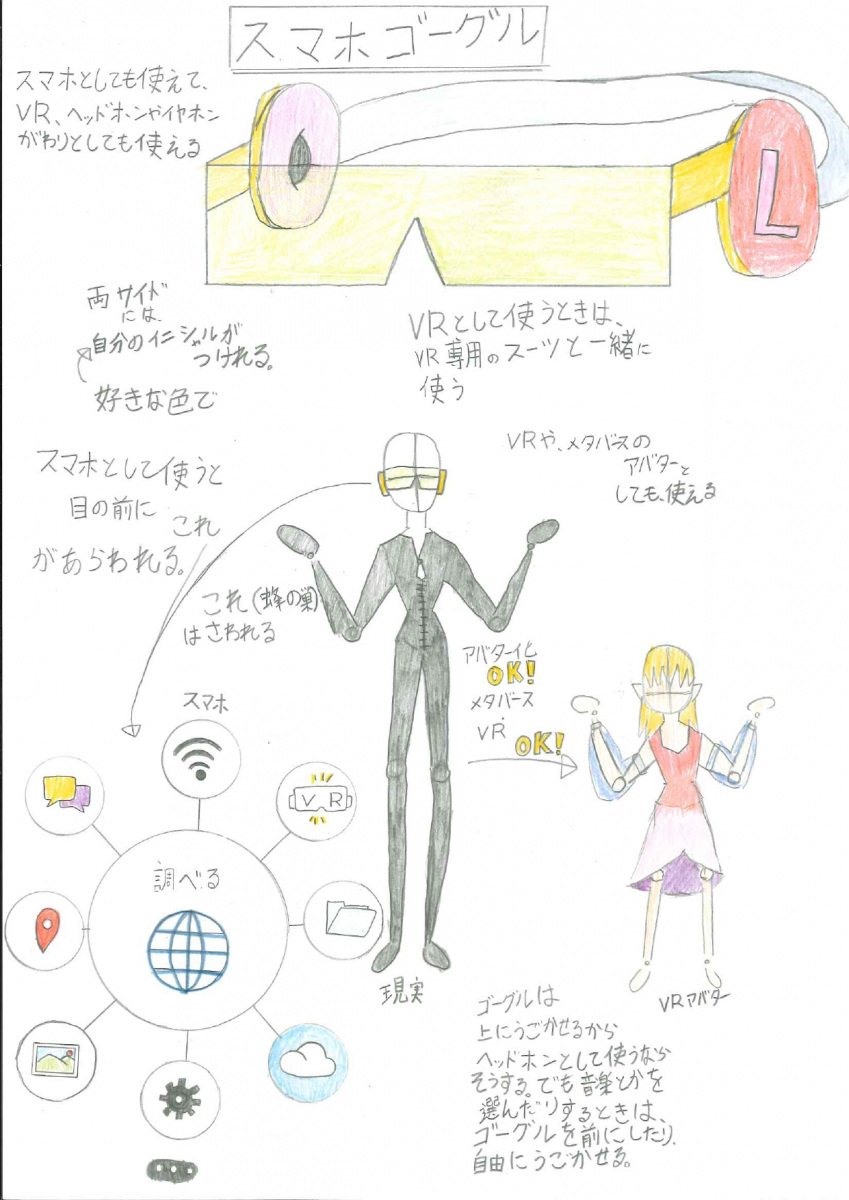 スマホゴーグル
スマホとしても使えて、
VR、ヘッドホンやイヤホン
がわりとしても使える
L
両サイド
には、
自分のイニシャルが
つけれる。
好きな色で
VRとして使うときは、
VR専用のスーツと一緒に
使う
スマホとして使うと
目の前に これ
があらわれる。
VRや、メタバースの
アバターと
しても、使える
これ(蜂の巣)
はさわれる
アバターイヒ
OK!
メタバース
VR
OK!
スマホ
VR
調べる
現実
VRアバター
ゴーグルは
上にうごかせるから
ヘッドホンとして使うなら
そうする。でも音楽とかを
選んだりするときは、
ゴーグルを前にしたり、
自由にうごかせる。